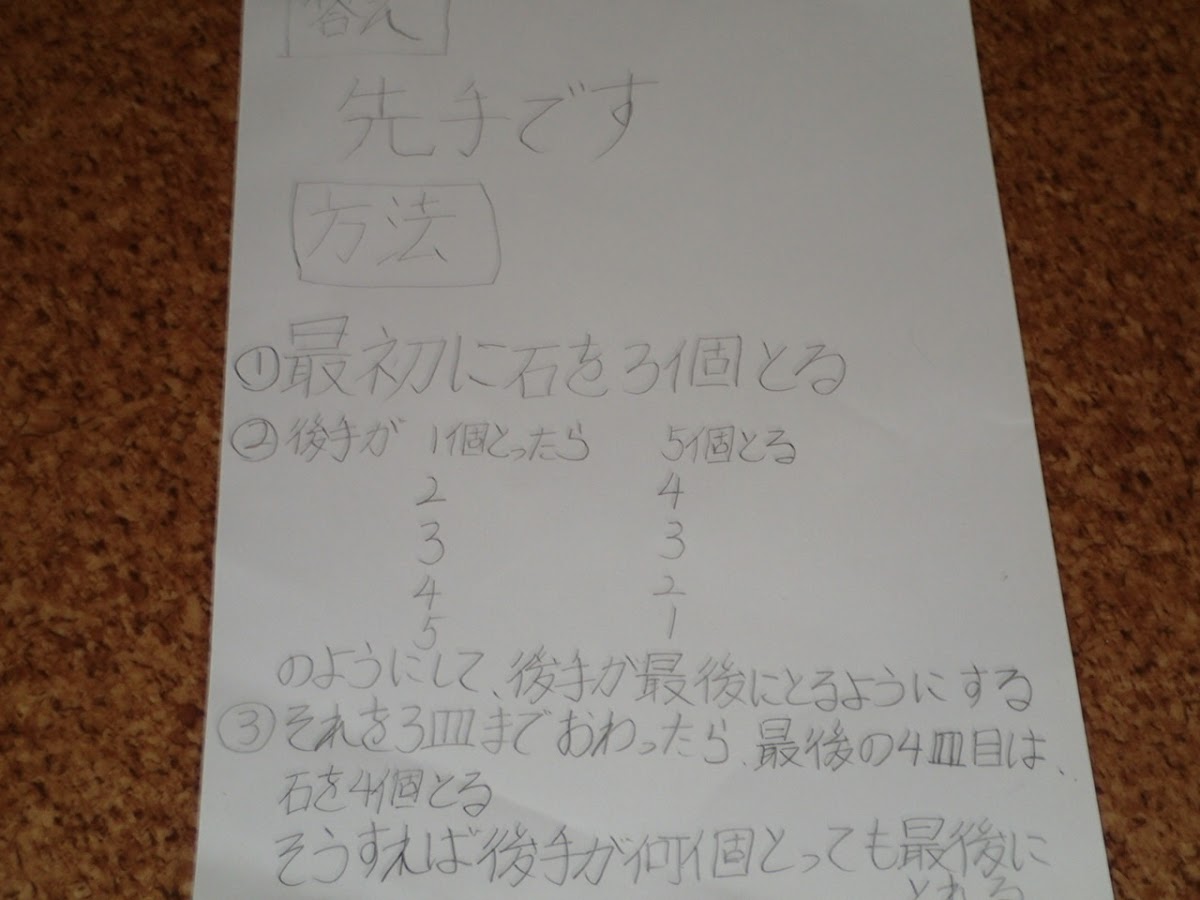 答え
先手です
方法
①最初に石を3個とる
②後手が 1個とったら 5個とる
2 4
3 3
4 2
5 1
のようにして、後手が最後にとるようにする
③それを3皿までおわったら、最後の4皿目は、
石を4個とる
そうすれば後手が何個とっても最後に
とれる